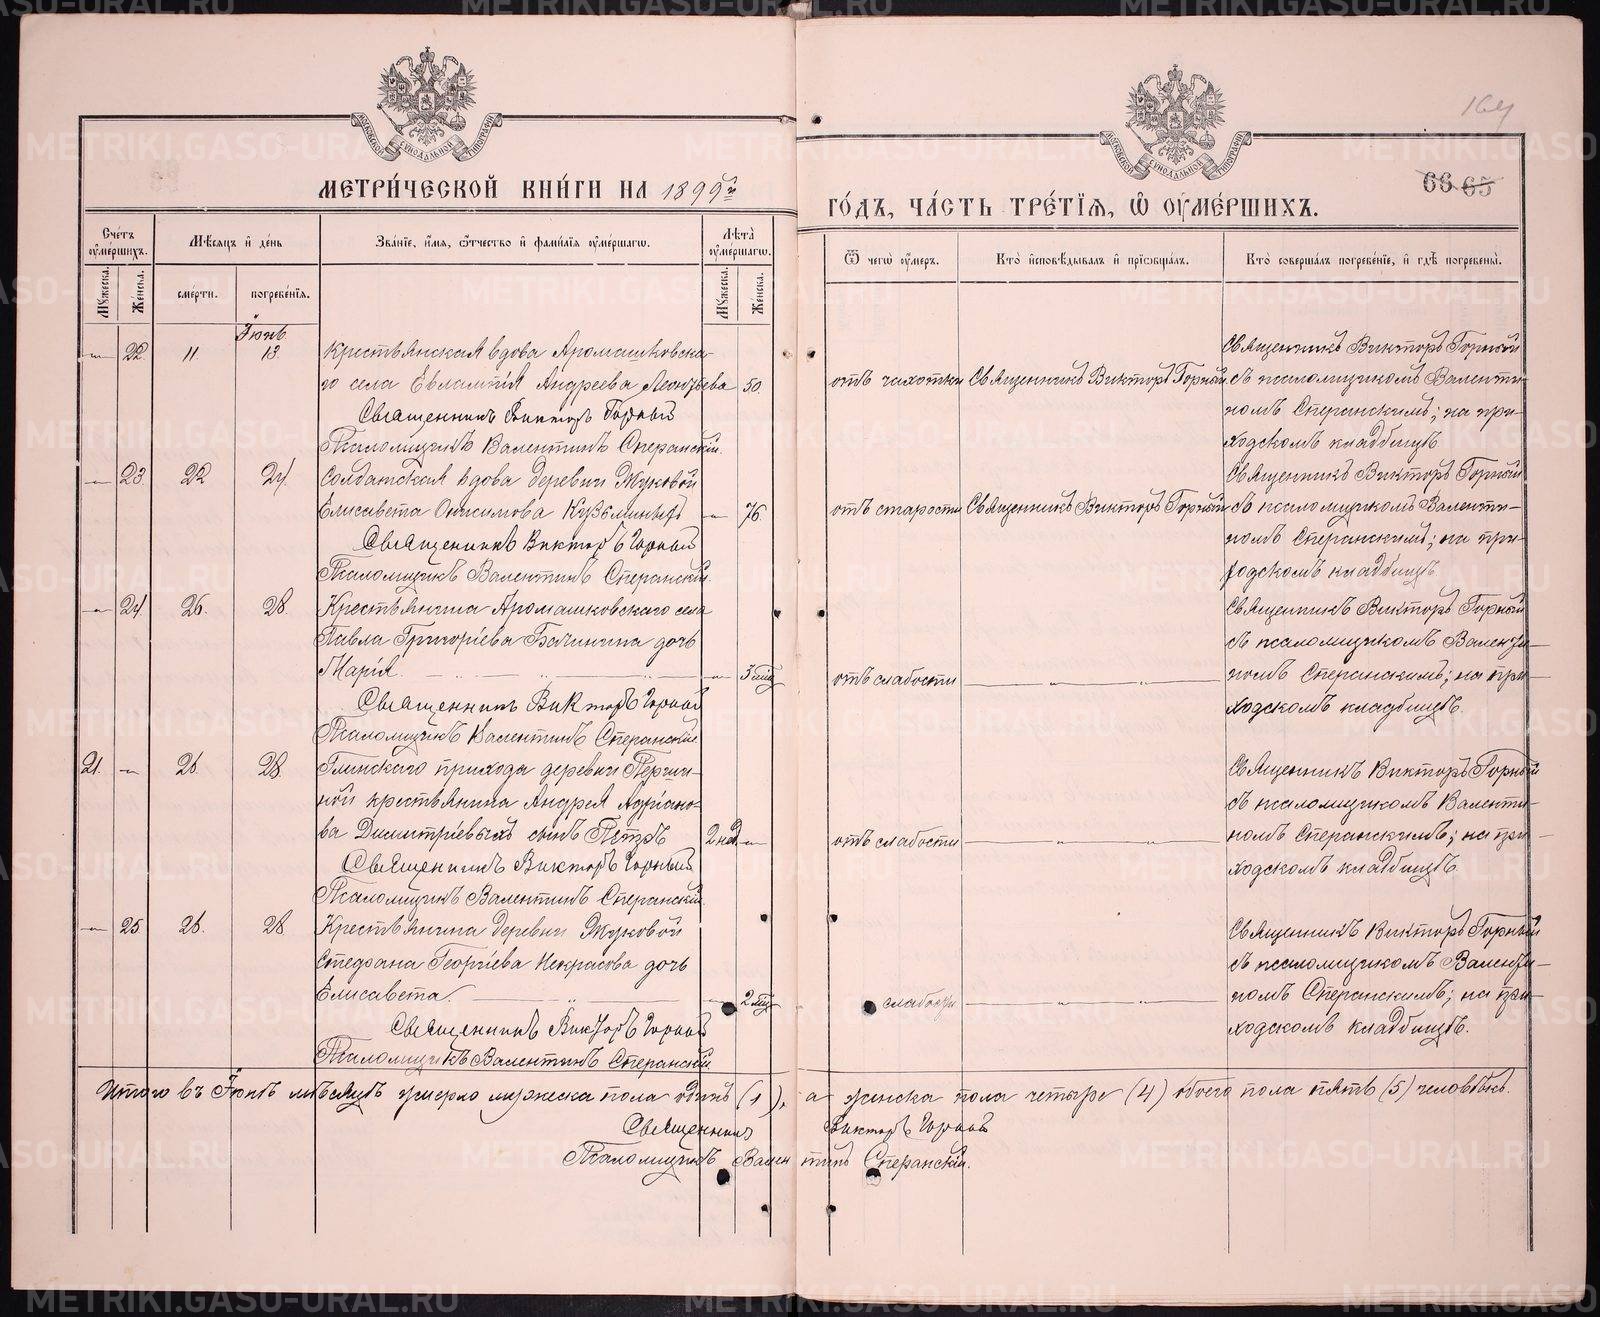 МЕТРИ́ЧЕСКОЙ КНИ́ГИ НА 1899й
ГО́ДЪ, ЧА́СТЬ ТРЕ́ТІѦ, Ѡ ОУМЕ́РШИХЪ.
164
66 65
Сче́тъ оуме́ршихъ.
Мꙋжеска.
Же́нска.
Мѣ́сяцъ и де́нь
сме́рти.
погребе́нія.
Зва́ніе, и́мя, ѻ́тчество и фами́лія оуме́ршагѡ.
Лѣ́та оуме́ршагѡ.
Мꙋжеска.
Же́нска.
Ѿ чегѡ̀ оу́меръ.
Кто̀ исповѣ́дывалъ и прїѡбща́лъ.
Кто̀ соверша́лъ погребе́ніе, и гдѣ̀ погребены̀.
Іюнь
22. 11. 13. Крестьянская вдова Аромашковска-
го села Евлампія Андреева Леонтьева 50.
Священникъ Викторъ Горный
Псаломщикъ Валентинъ Сперанскій.
отъ чахотки Священникъ Викторъ Горный
Священникъ Викторъ Горный
съ псаломщикомъ Валенти-
номъ Сперанскимъ; на при-
ходскомъ кладбищѣ.
23. 22 24. Солдатская вдова деревни Жуковой
Елисавета Онисимова Кузьминыхъ 76.
Священникъ Викторъ Горный
Псаломщикъ Валентинъ Сперанскій.
отъ старости Священникъ Викторъ Горный
Священникъ Викторъ Горный
съ псаломщикомъ Валенти-
номъ Сперанскимъ; на при-
ходскомъ кладбищѣ.
24. 26. 28. Крестьянина Аромашковского села
Павла Григоріева Бачинина дочь
Марія. 3 мѣс
Священникъ Викторъ Горный
Псаломщикъ Валентинъ Сперанскій
отъ слабости
Священникъ Викторъ Горный
съ псаломщикомъ Валенти-
номъ Сперанскимъ; на при-
ходскомъ кладбищѣ.
21. 26. 28. Глинского прихода деревни
ной крестьянина Андрея Адріано-
ва Димитріевыхъ сынъ Петръ 2 нед.
Священникъ Викторъ Горный
Псаломщикъ Валентинъ Сперанскій.
отъ слабости
Священникъ Викторъ Горный
съ псаломщикомъ Валенти-
номъ Сперанскимъ; на при-
ходскомъ кладбищѣ.
25 26. 28 Крестьянина деревни Жуковой
Стефана Георгіева Некрасова дочь
Елисавета. 2 мѣс
Священникъ Викторъ Горный
Псаломщикъ Валентинъ Сперанскій.
слабости
Священникъ Викторъ Горный
съ псаломщикомъ Валенти-
номъ Сперанскимъ; на при-
ходскомъ кладбищѣ.
Итого въ Іюнѣ мѣсяцѣ умерло мужеска пола одинъ (1), а женска пола четыре (4) обоего пола пять (5) человѣкъ.
Священникъ Викторъ Горный
Псаломщикъ Валентинъ Сперанскій.
METRIKI.GASO-URAL.RU